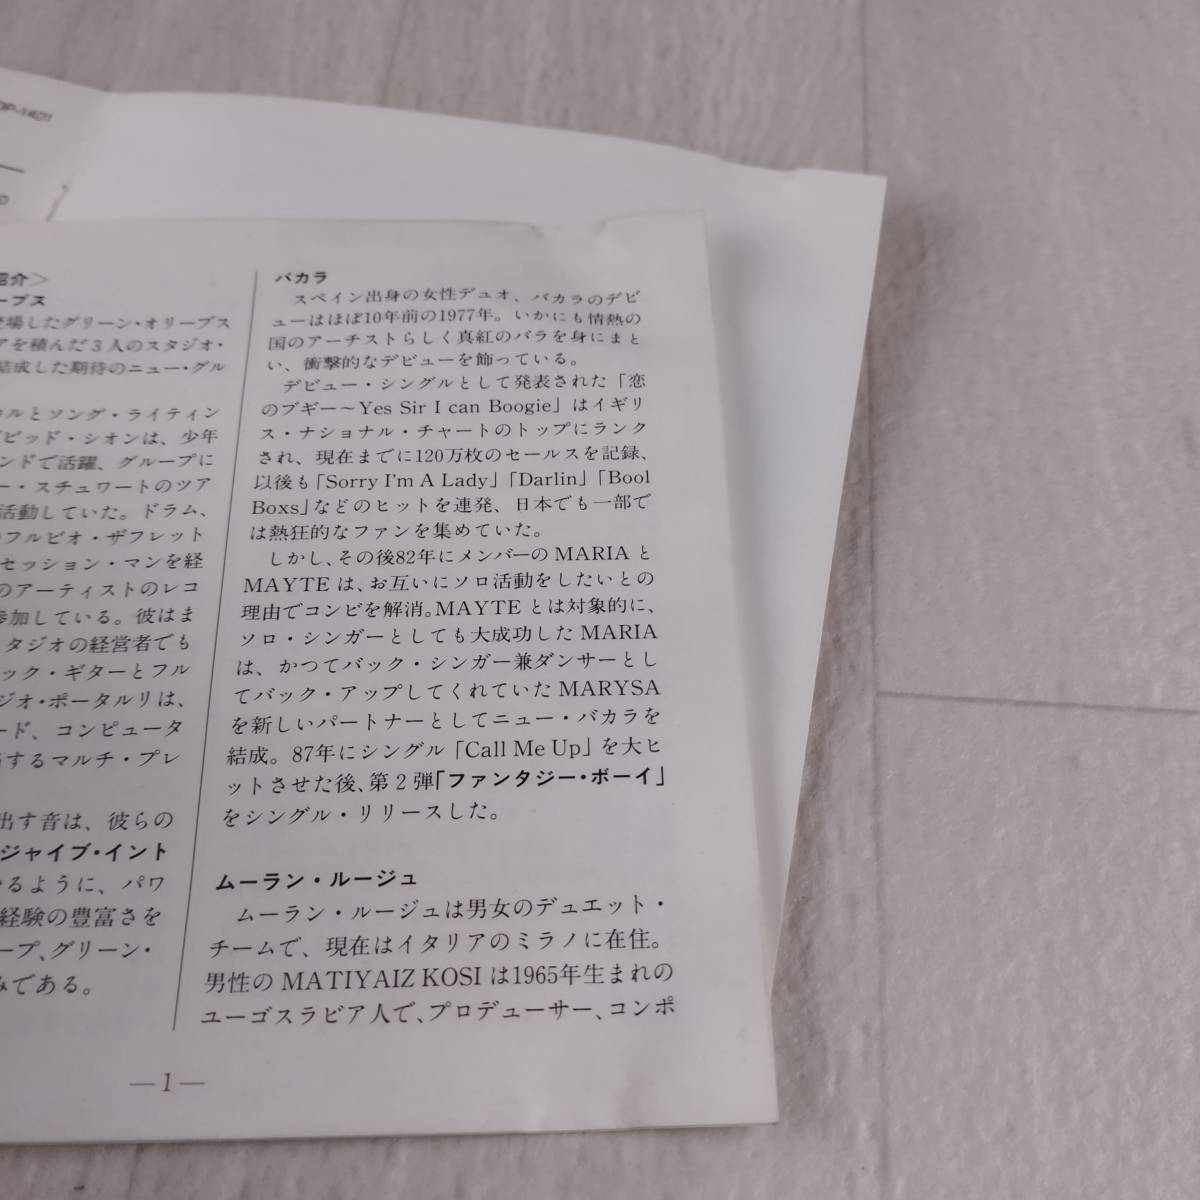 DP-1401
紹介＞
ープス
登場したグリーン・オリーブス
アを積んだ３人のスタジオ・
結成した期待のニュー・グル
カルとソング・ライティン
デビッド・シオンは、少年
ンドで活躍、グループに
ー・スチュワートのツア
活動していた。ドラム、
のフルビオ・ザフレット
セッション・マンを経
のアーティストのレコ
参加している。彼はま
タジオの経営者でも
ック・ギターとフル
ジオ・ポータルリは、
ード、コンピュータ
するマルチ・プレ
出す音は、彼らの
ジャイブ・イント
るように、パワ
経験の豊富さを
ープ、グリーン・
みである。
バカラ
スペイン出身の女性デュオ、バカラのデビ
ューはほぼ10年前の1977年。いかにも情熱の
国のアーチストらしく真紅のバラを身にまと
い、衝撃的なデビューを飾っている。
デビュー・シングルとして発表された「恋
のブギー～Yes Sir I can Boogie」はイギリ
ス・ナショナル・チャートのトップにランク
され、現在までに120万枚のセールスを記録、
以後も「Sorry I'm A Lady」「Darlin」「Bool
Boxs」などのヒットを連発、日本でも一部で
は熱狂的なファンを集めていた。
しかし、その後82年にメンバーの MARIA と
MAYTE は、お互いにソロ活動をしたいとの
理由でコンビを解消。MAYTE とは対象的に、
ソロ・シンガーとしても大成功した MARIA
は、かつてバック・シンガー兼ダンサーとし
てバック・アップしてくれていた MARYSA
を新しいパートナーとしてニュー・バカラを
結成。87年にシングル「Call Me Up」を大ヒ
ットさせた後、第２弾「ファンタジー・ボーイ」
をシングル・リリースした。
ムーラン・ルージュ
ムーラン・ルージュは男女のデュエット・
チームで、現在はイタリアのミラノに在住。
男性の MATIYAIZ KOSI は1965年生まれの
ユーゴスラビア人で、プロデューサー、コンポ
—1—